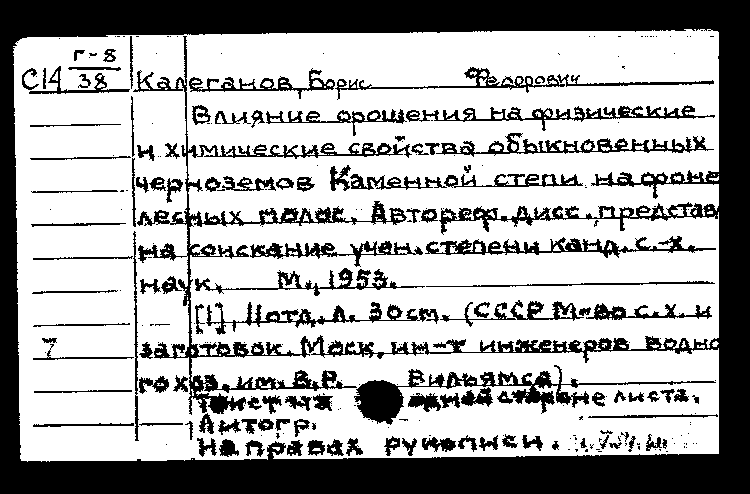 Г-8
С14 38 Калеганов, Борис Федорович
Влияние орошения на физические
и химические свойства обыкновенных
черноземов Каменной степи на фоне
лесных полос. Автореф. дисс. представ
на соискание учен. степени канд. с.-х.
наук. М., 1953.
[1], 11 отд. л. 30 см. (СССР М-во с.х. и
7 заготовок. Моск. ин-т инженеров водно
го хоз. им. В.Р. Вильямса).
Текст на одной стороне листа.
Литогр.
На правах рукописи.